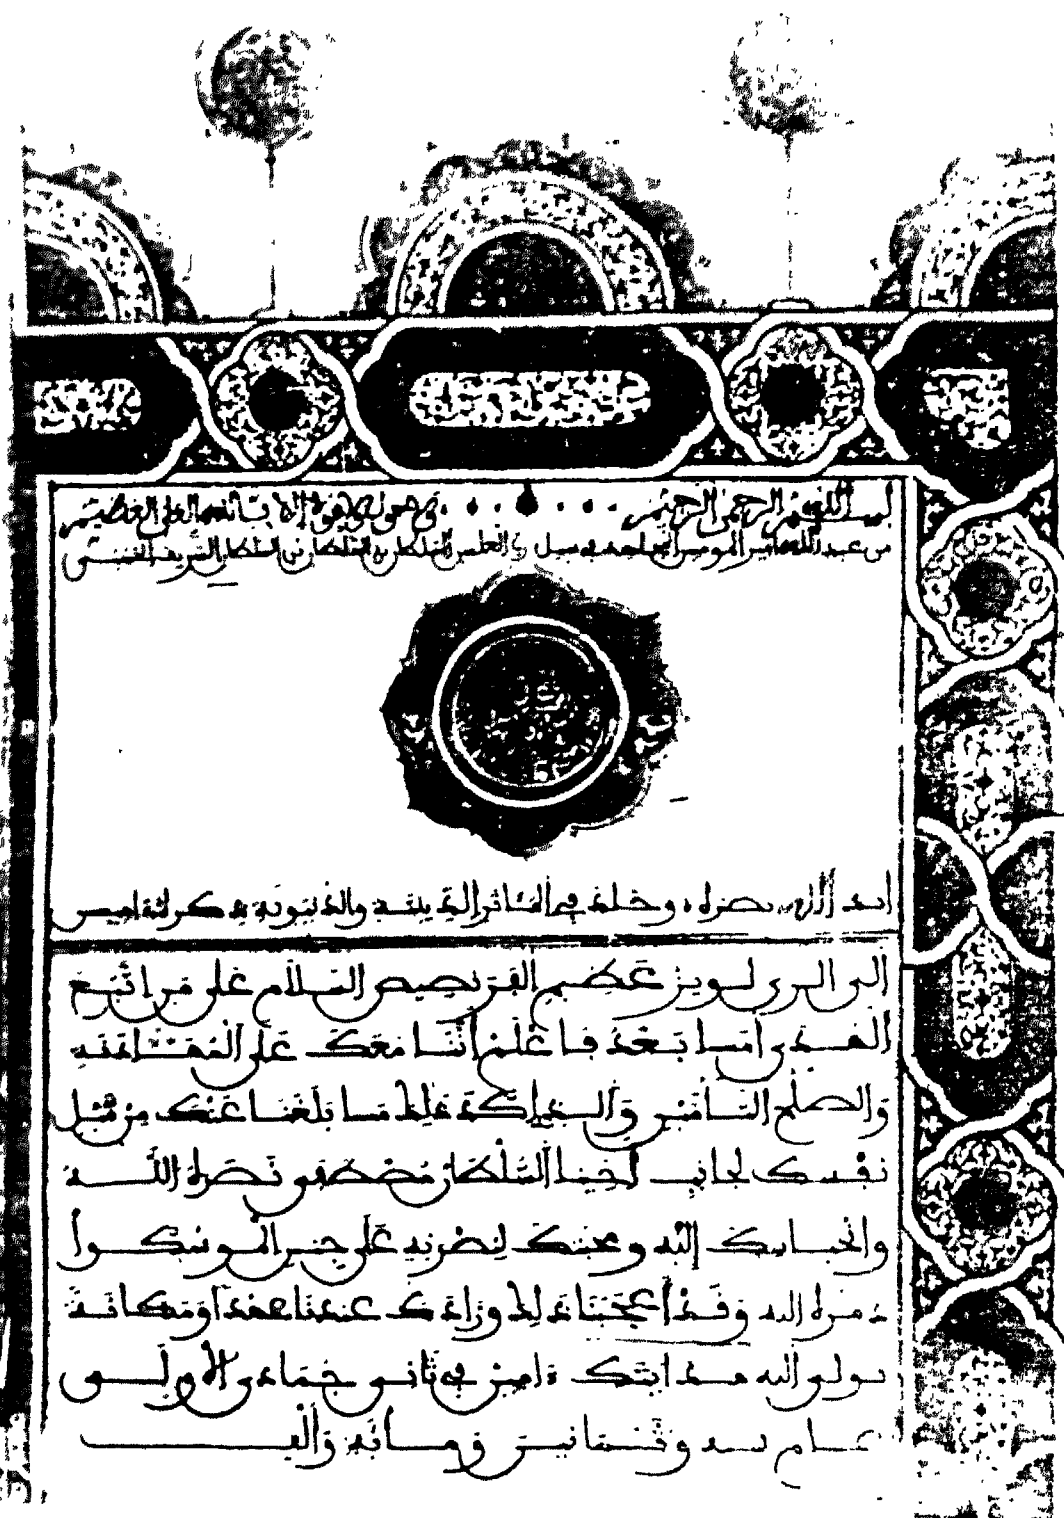 بسم الله الرحمن الرحيم ولا حول ولا قوة إلا بالله العلي العظيم
من عبد الله امير المومنين المجاهد في سبيل رب العلمين السلطان بن السلطان بن السلطان الشريف الحسني
ايد الله نصره وخلد في المئاثر الدينية والدنيوية ذكره امين
إلى الري لويز عظيم الفرنصيص السلام على من اتبع
الهدى أما بعد فاعلم أننا معك على المهادنة
والصلح التام ما بلغنا عنك من ميل
نفسك لجانب أخينا السلطان مصطفى نصره الله
وانحياشك إليه ومحبتك لنصرته على جنس الموسكوا
دمره الله وقد أعجبنا ذلك وزادك عندنا ومكانة
تولى الله هدايتك ءامين في ثاني جمادى الاولى
عام ستة وثمانين ومائة وألف